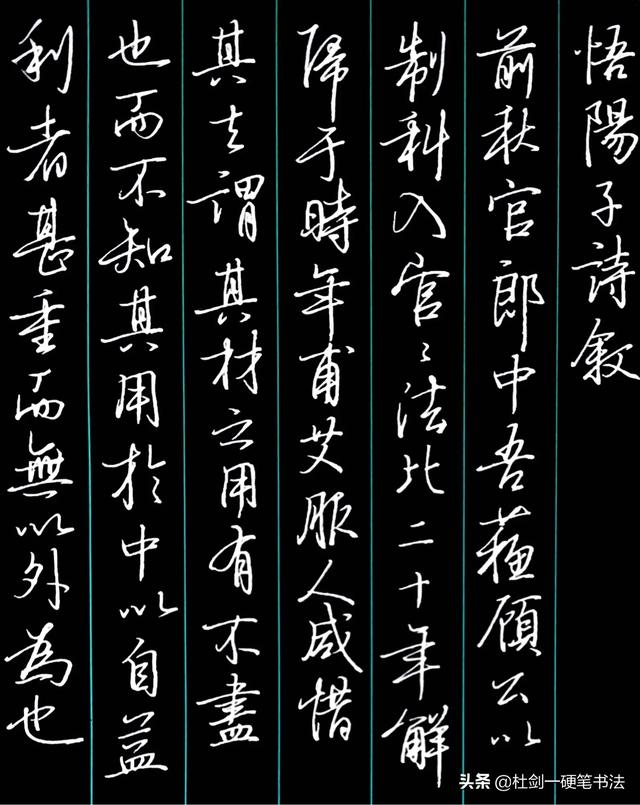 悟陽子詩敘
前秋官郎中吾蘓顧公以
制科入官々法比二十年解
歸于時年甫艾服人咸惜
其去謂其材之用有不盡
也而不知其用於中以自益
利者甚重而無以外為也
头条 @杜剑一硬笔书法